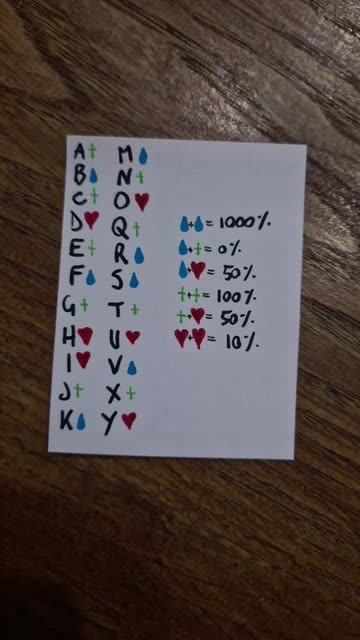 A✝ M💧
B💧 N✝
C✝ O❤
D❤ Q✝
E✝ R💧
F💧 S💧
G✝ T✝
H❤ U❤
I❤ V💧
J✝ X✝
K💧 Y❤
💧+💧= 1000%
💧+✝= 0%
💧+❤= 50%
✝+✝= 100%
✝+❤= 50%
❤+❤= 10%